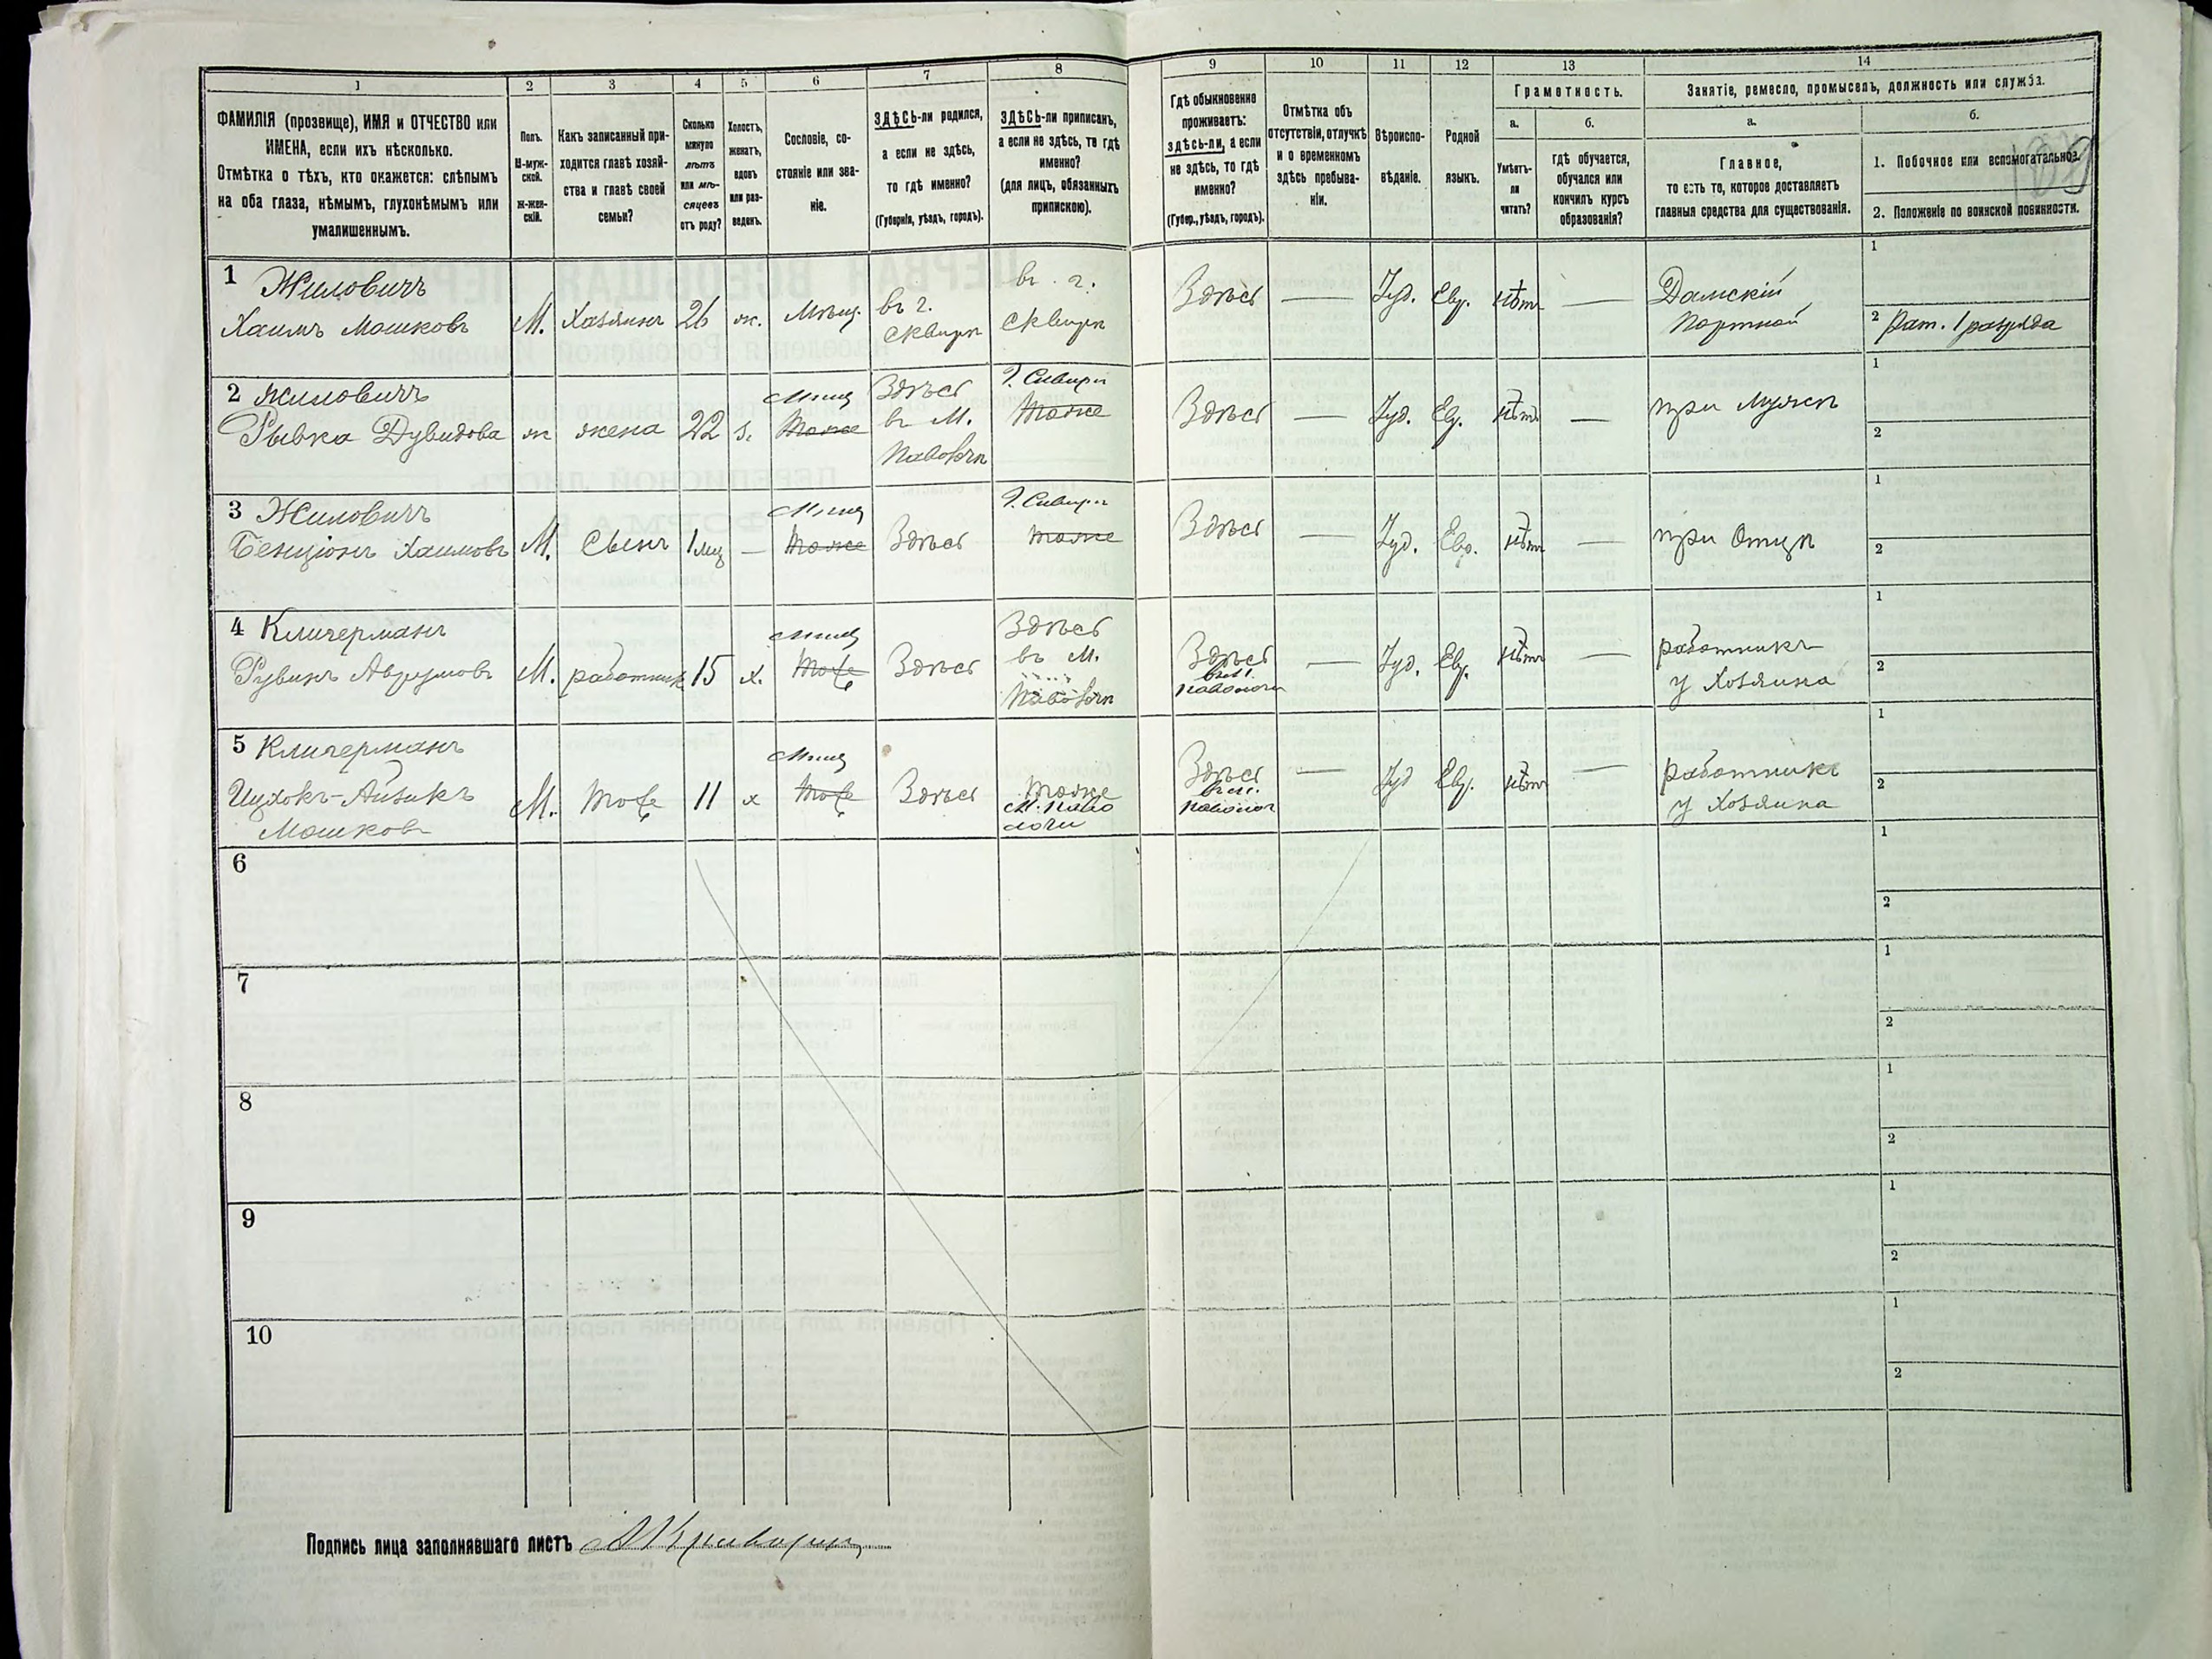 1 2 3 4 5 6 7 8 9 10 11 12 13 14
ФАМИЛІЯ (прозвище), ИМЯ и ОТЧЕСТВО или
ИМЕНА, если ихъ нѣсколько.
Отмѣтка о тѣхъ, кто окажется: слѣпымъ
на оба глаза, нѣмымъ, глухонѣмымъ или
умалишеннымъ.
Полъ.
М-муж-
ской.
Ж-жен-
скій.
Какъ записанный при-
ходится главѣ хозяй-
ства и главѣ своей
семьи?
Сколько
минуло
лѣтъ
или мѣ-
сяцевъ
отъ роду?
Холостъ,
женатъ,
вдовъ
или раз-
веденъ.
Сословіе, со-
стояніе или зва-
ніе.
ЗДѢСЬ-ли родился,
а если не здѣсь,
то гдѣ именно?
(Губернія, уѣздъ, городъ).
ЗДѢСЬ-ли приписанъ,
а если не здѣсь, то гдѣ
именно?
(для лицъ, обязанныхъ
припискою).
Гдѣ обыкновенно
проживаетъ:
здѣсь-ли, а если
не здѣсь, то гдѣ
именно?
(Губер., уѣздъ, городъ).
Отмѣтка объ
отсутствіи, отлучкѣ
и о временномъ
здѣсь пребыва-
ніи.
Вѣроиспо-
вѣданіе.
Родной
языкъ.
Грамотность.
а.
Умѣетъ-
ли
читать?
б.
гдѣ обучается,
обучался или
кончилъ курсъ
образованія?
Занятіе, ремесло, промыселъ, должность или служба.
а.
Главное,
то есть то, которое доставляетъ
главныя средства для существованія.
б.
1. Побочное или вспомогательное.
2. Положеніе по воинской повинности.
1 Жиловичъ
Хаимъ Мошковъ
М.
Хазяинъ
26
ж.
Мѣщ.
въ г.
Сквирѣ
въ г.
Сквирѣ
Здѣсь
—
Іуд.
Евр.
нѣтъ
—
Дамскій
Портной
1
2 Рат. 1 разряда
2 Жиловичъ
Рывка Дувидова
ж
жена
22
з.
Мѣщ
тоже
Здѣсь
въ М.
Паволочѣ
Г. Сквири
тоже
Здѣсь
—
Іуд.
Евр.
нѣтъ
—
при Мужѣ
1
2
3 Жиловичъ
Бенціонъ Хаимовъ
М.
Сынъ
1 мѣц
—
Мѣщ
тоже
Здѣсь
Г. Сквири
тоже
Здѣсь
—
Іуд.
Евр.
нѣтъ
—
при Отцѣ
1
2
4 Кличерманъ
Рувинъ Аврумовъ
М.
работникъ
15
х.
Мѣщ
тоже
Здѣсь
Здѣсь
въ М.
Паволочѣ
Здѣсь
въ м.
паволочи
—
Іуд.
Евр.
нѣтъ
—
работникъ
у Хозяина
1
2
5 Кличерманъ
Ицхокъ-Айзикъ
Мошковъ
М.
тоже
11
х
Мѣщ
тоже
Здѣсь
тоже
М. паво
лочи
Здѣсь
въ м.
паволоч
—
Іуд
Евр.
нѣтъ
—
работникъ
у Хозяина
1
2
6
1
2
7
1
2
8
1
2
9
1
2
10
1
2
Подпись лица заполнявшаго листъ